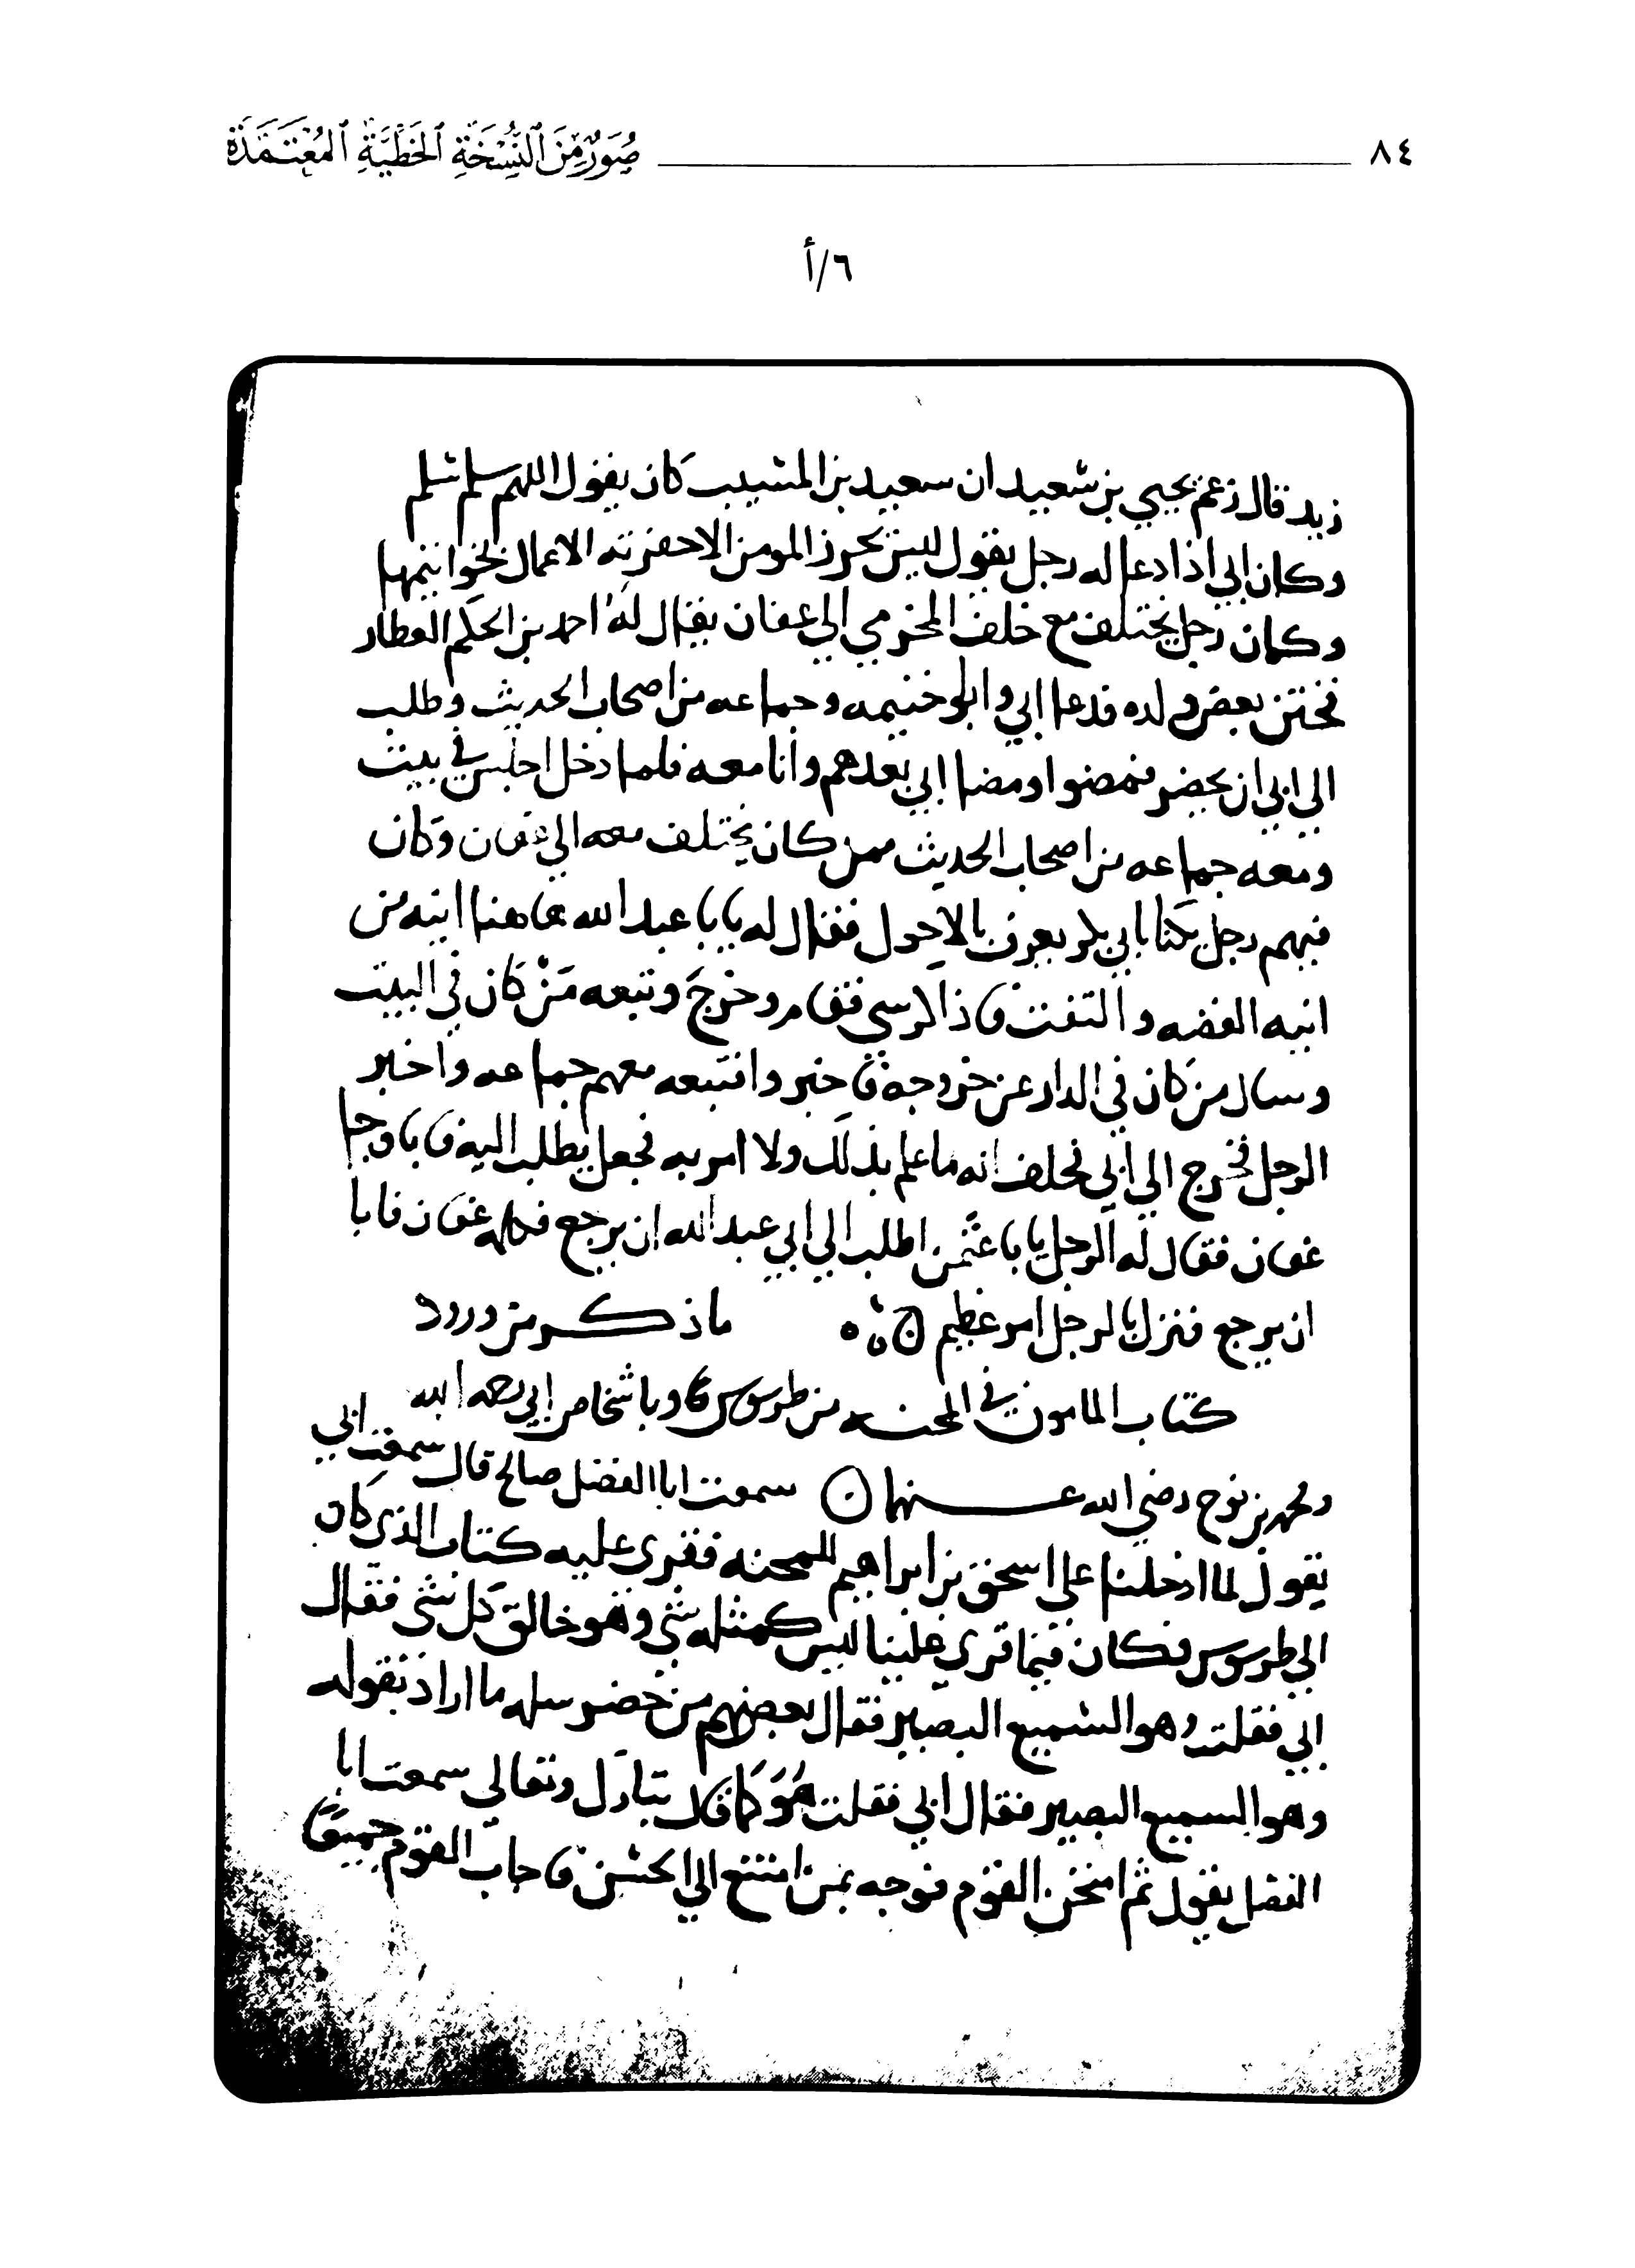 ٨٤
صُوَرٌ مِنَ النُّسْخَةِ الخَطِّيَّةِ المُعْتَمَدَةِ
٦/أ
زيد قال زعم يحيي بن سعيد ان سعيد بن المسيب كان يقول اللهم سلم سلم
وكان ابي اذا دعا له رجل يقول ليس يحرز المومن الا حفرته الاعمال بخواتيمها
وكان رجل يختلف مع خلف المخرمي الي عفان يقال له احمد بن الحكم العطار
فختن بعض ولده فدعا ابي وابو خثيمه وجماعه من اصحاب الحديث وطلب
الي ابي ان يحضر فمضوا ومضا ابي بعدهم وانا معه فلما دخل اجلس في بيت
ومعه جماعه من اصحاب الحديث ممن كان يختلف معه الي عفان وكان
فيهم رجل يكنا بابي بكر يعرف بالاحول فقال له يابا عبد الله هاهنا انيه من
انيه الفضه والتفت فاذا كرسي فقام وخرج وتبعه من كان في البيت
وسال من كان في الدار عن خروجه فاخبر واتبعه معهم جماعه واخبر
الرجل فخرج الي ابي فحلف انه ما علم بذلك ولا امر به فجعل يطلب اليه فابا وجا
عفان فقال له الرجل يابا عثمن اطلب الي ابي عبد الله ان يرجع فكلمه عفان فابا
ان يرجع فنزل بالرجل امر عظيم ما ذكر من ورود
كتاب المامون في المحنه من طرسوس واشخاص ابي رحمه الله
ومحمد بن نوح رضي الله عنهما سمعت ابا الفضل صالح قال سمعت ابي
يقول لما ادخلنا علي اسحق بن ابراهيم للمحنه فقري عليه كتاب الذي كان
الي طرسوس فكان فيما قري علينا ليس كمثله شي وهو خالق كل شي فقال
ابي فقلت وهو السميع البصير فقال بعضهم من حضر سله ما اراد بقوله
وهو السميع البصير فقال ابي فقلت هو كما قال تبارك وتعالي سمعت ابا
الفضل يقول ثم امتحن القوم فوجه بمن امتنع الي الحبس فاجاب القوم جميعا